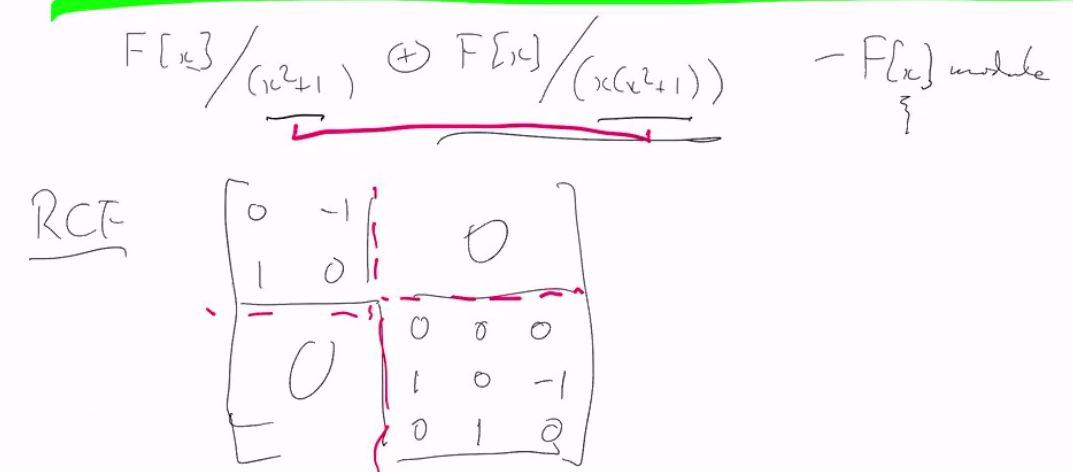 F[x]/(x²+1) ⊕ F[x]/(x(x²+1)) – F[x] module
RCF
0 -1 0
1 0
0 0 0 0
1 0 -1
0 1 0